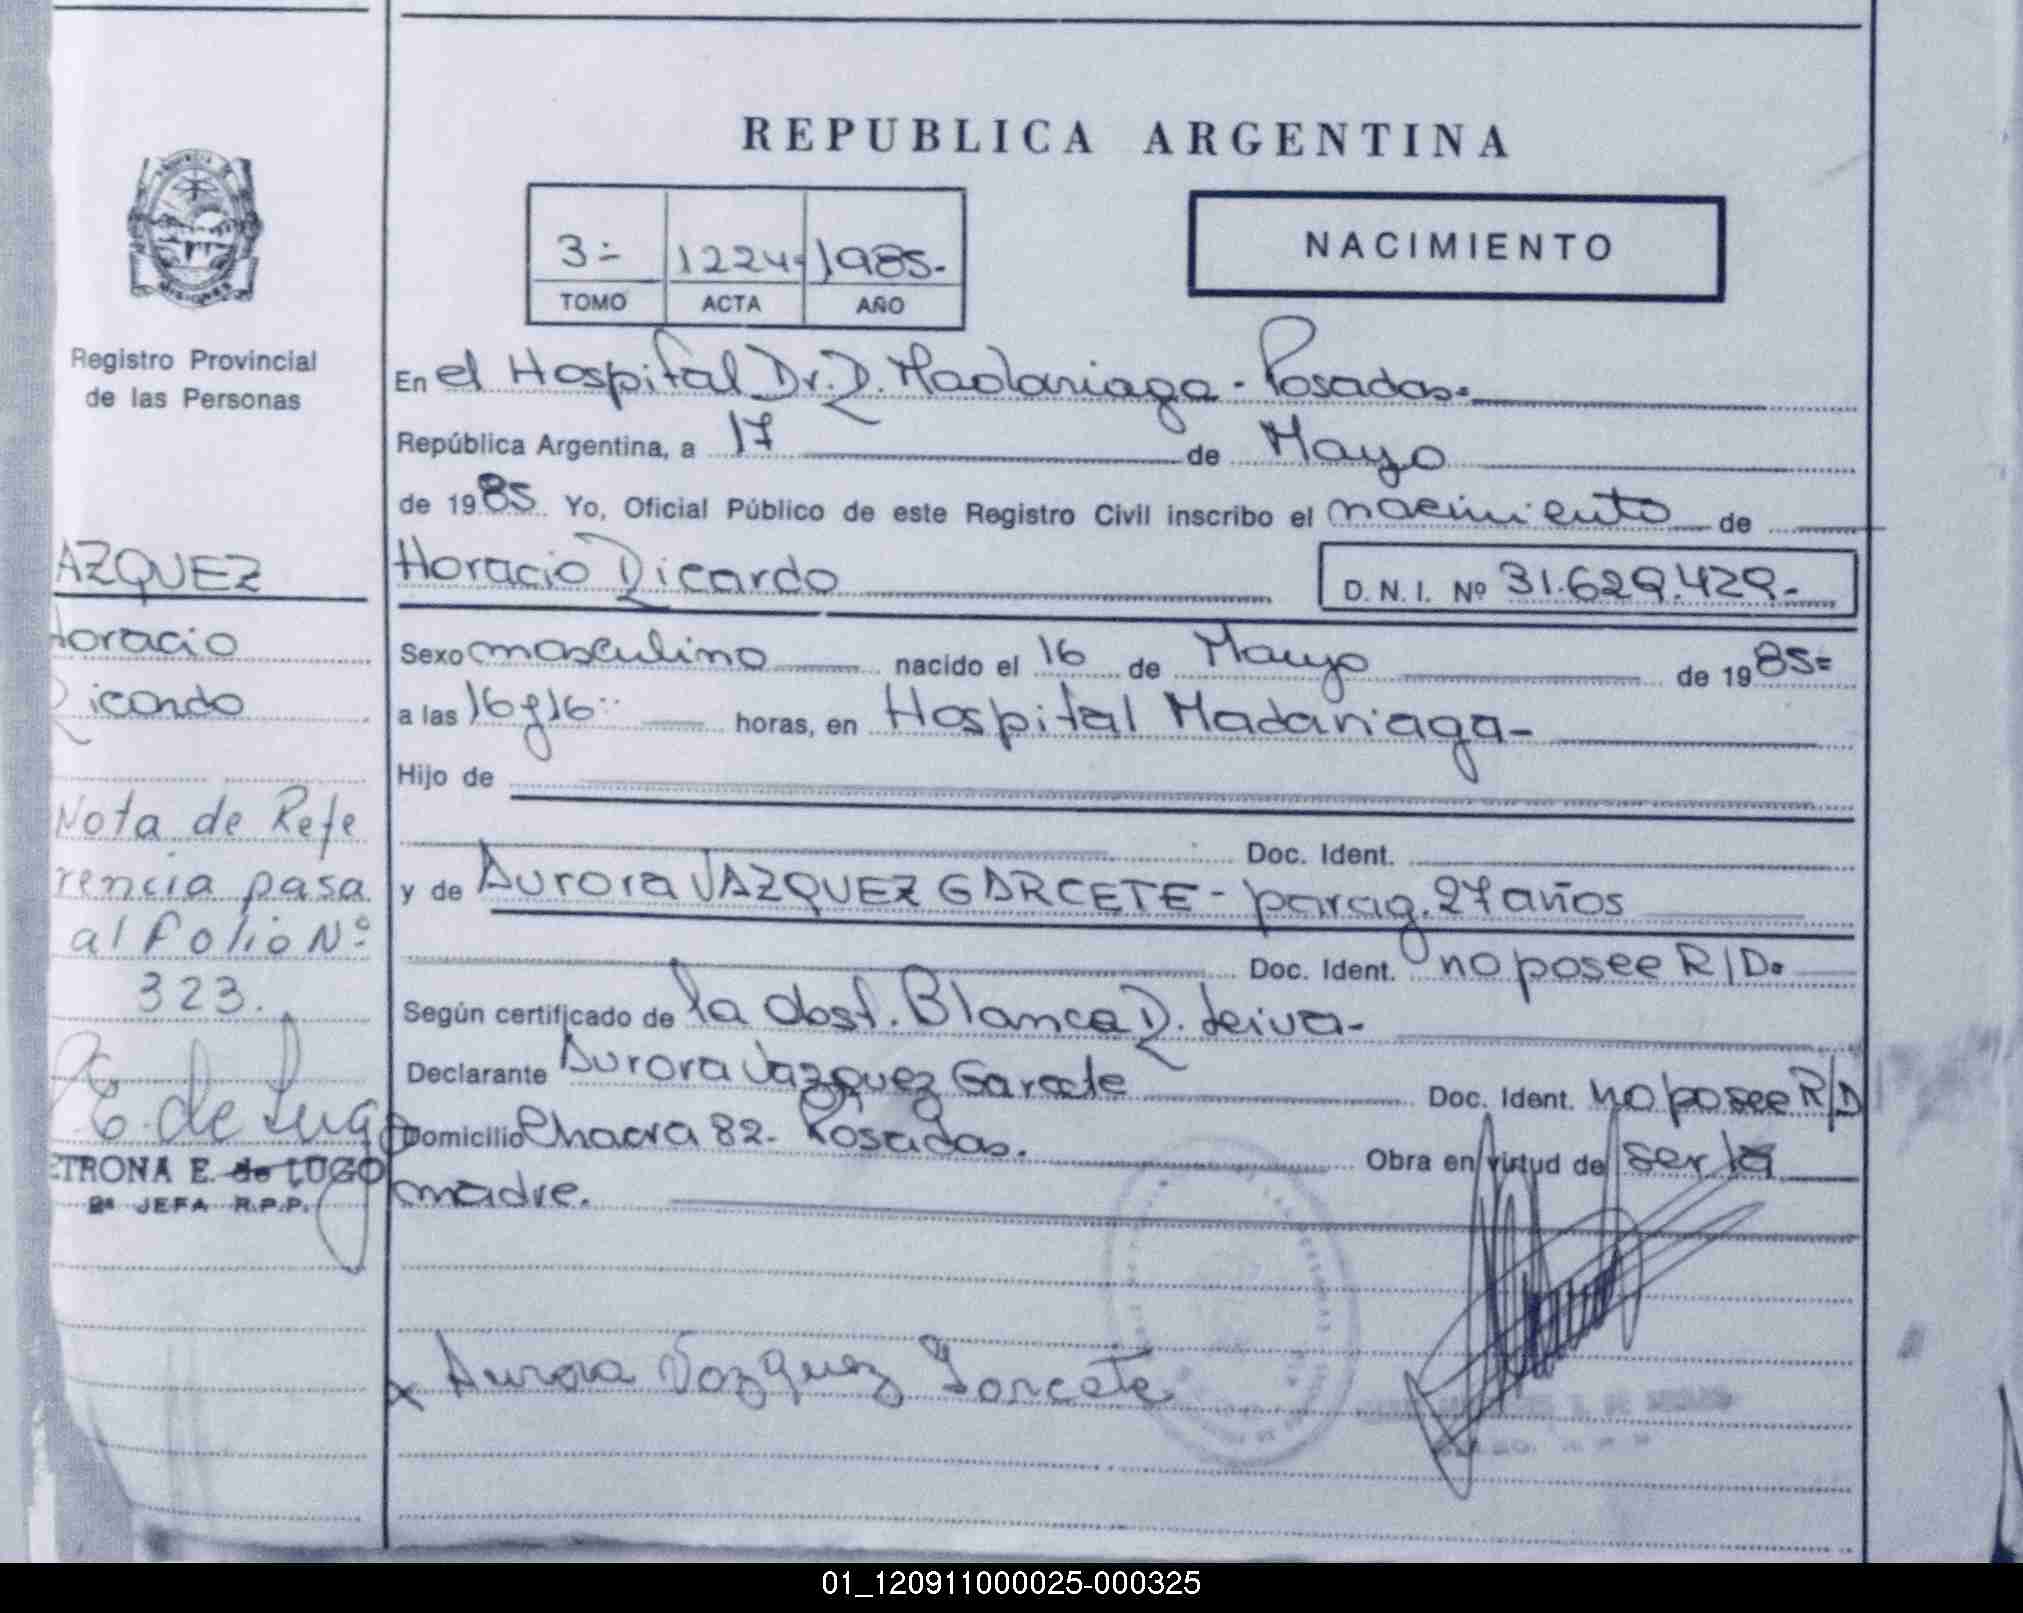 REPUBLICA ARGENTINA
MISIONES
Registro Provincial
de las Personas
3=
1224-
1985-
TOMO
ACTA
AÑO
NACIMIENTO
En el Hospital Dr. R. Madariaga - Posadas=
República Argentina, a 17 de Mayo
de 1985 Yo, Oficial Público de este Registro Civil inscribo el nacimiento de
Horacio Ricardo
D. N. I. Nº 31.629.429.-
Sexo masculino nacido el 16 de Mayo de 1985=
a las 16 y 16 horas, en Hospital Madariaga-
Hijo de
Doc. Ident.
y de Aurora VAZQUEZ GARCETE - parag. 27 años
Doc. Ident. no posee R/D.
Según certificado de la obst. Blanca R. Leiva-
Declarante Aurora Vazquez Garcete Doc. Ident. no posee R/D
Domicilio Chacra 82- Posadas. Obra en virtud de ser la
madre.
x Aurora Vazquez Garcete
AZQUEZ
Horacio
Ricardo
Nota de Refe
rencia pasa
al folio Nº
323.
E. de Lugo
ETRONA E. de LUGO
2ª JEFA R.P.P.
01_120911000025-000325